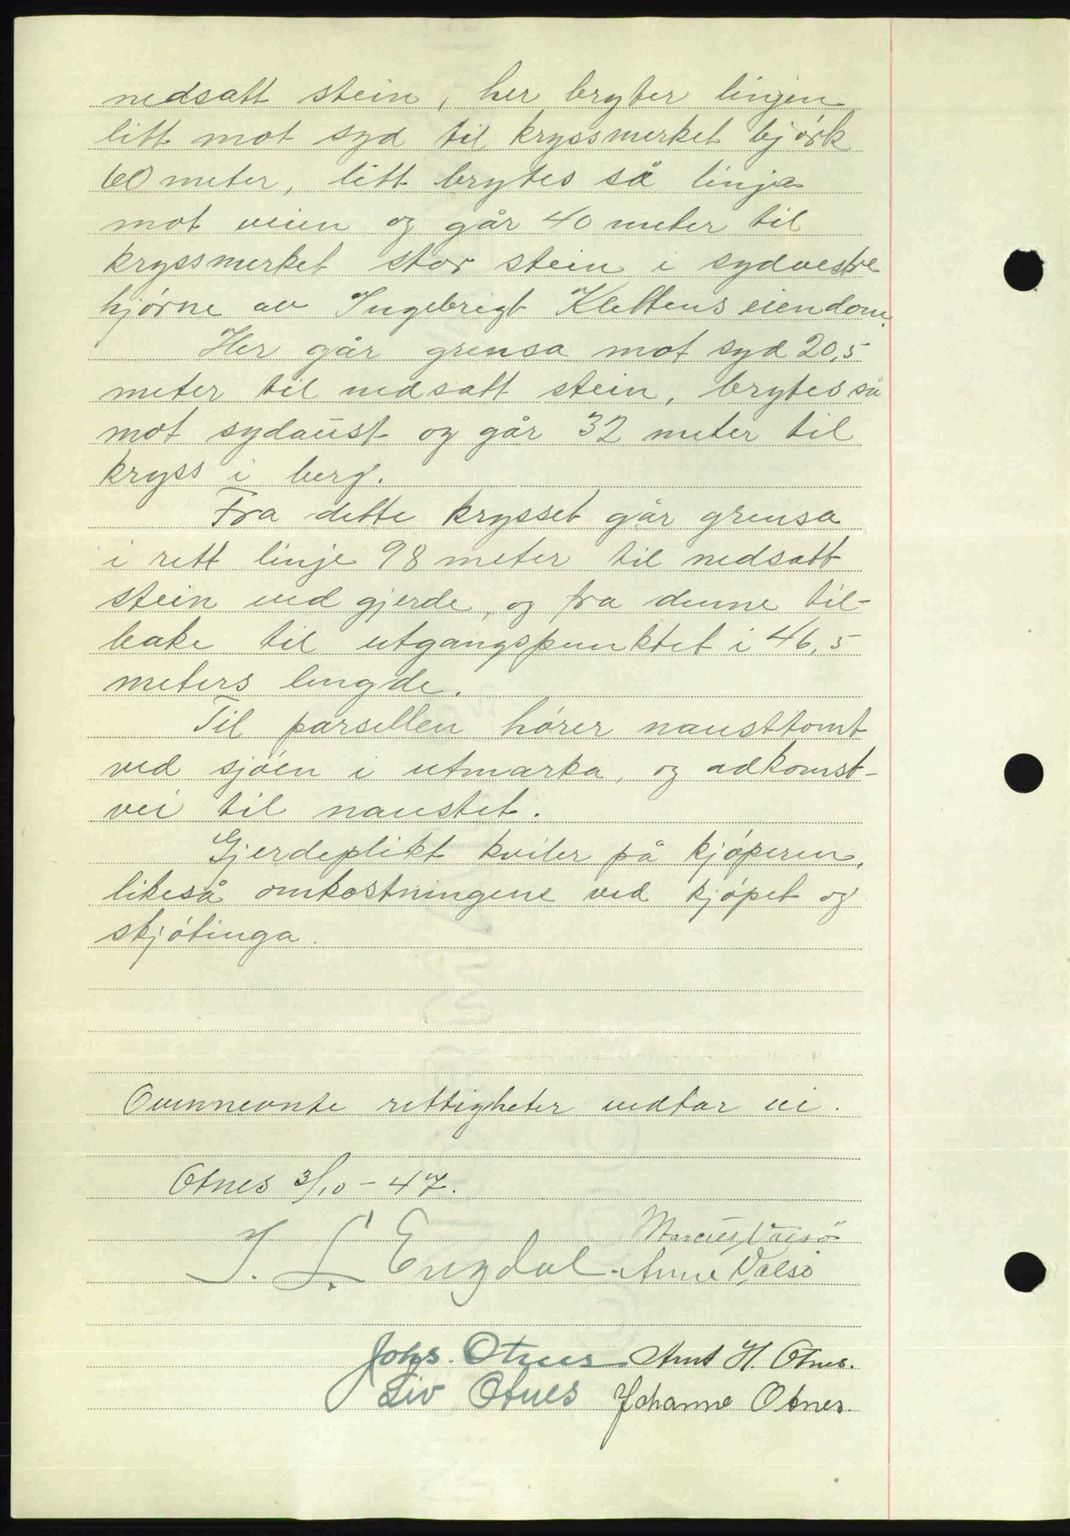 nedsatt stein, her bryter linjen
litt mot syd til kryssmerket bjørk
60 meter, litt brytes så linja
mot veien og går 40 meter til
kryssmerket stor stein i sydvestre
hjørne av Ingebrigt Klettens eiendom.
Her går grensa mot syd 20,5
meter til nedsatt stein, brytes så
mot sydaust og går 32 meter til
kryss i berg.
Fra dette krysset går grensa
i rett linje 98 meter til nedsatt
stein ved gjerde, og fra denne til-
bake til utgangspunktet i 46,5
meters lengde.
Til parsellen hører nausttomt
ved sjøen i utmarka, og adkomst-
vei til naustet.
Gjerdeplikt kviler på kjøperen,
likeså omkostningene ved kjøpet og
skjøtinga.
Ovennevnte rettigheter vedtar vi.
Otnes 3/10 - 47.
Marcus Valsö
J. L. Engdal. Anne Valsö
Johs. Otnes Arnt H. Otnes.
Liv Otnes Johanne Otnes.